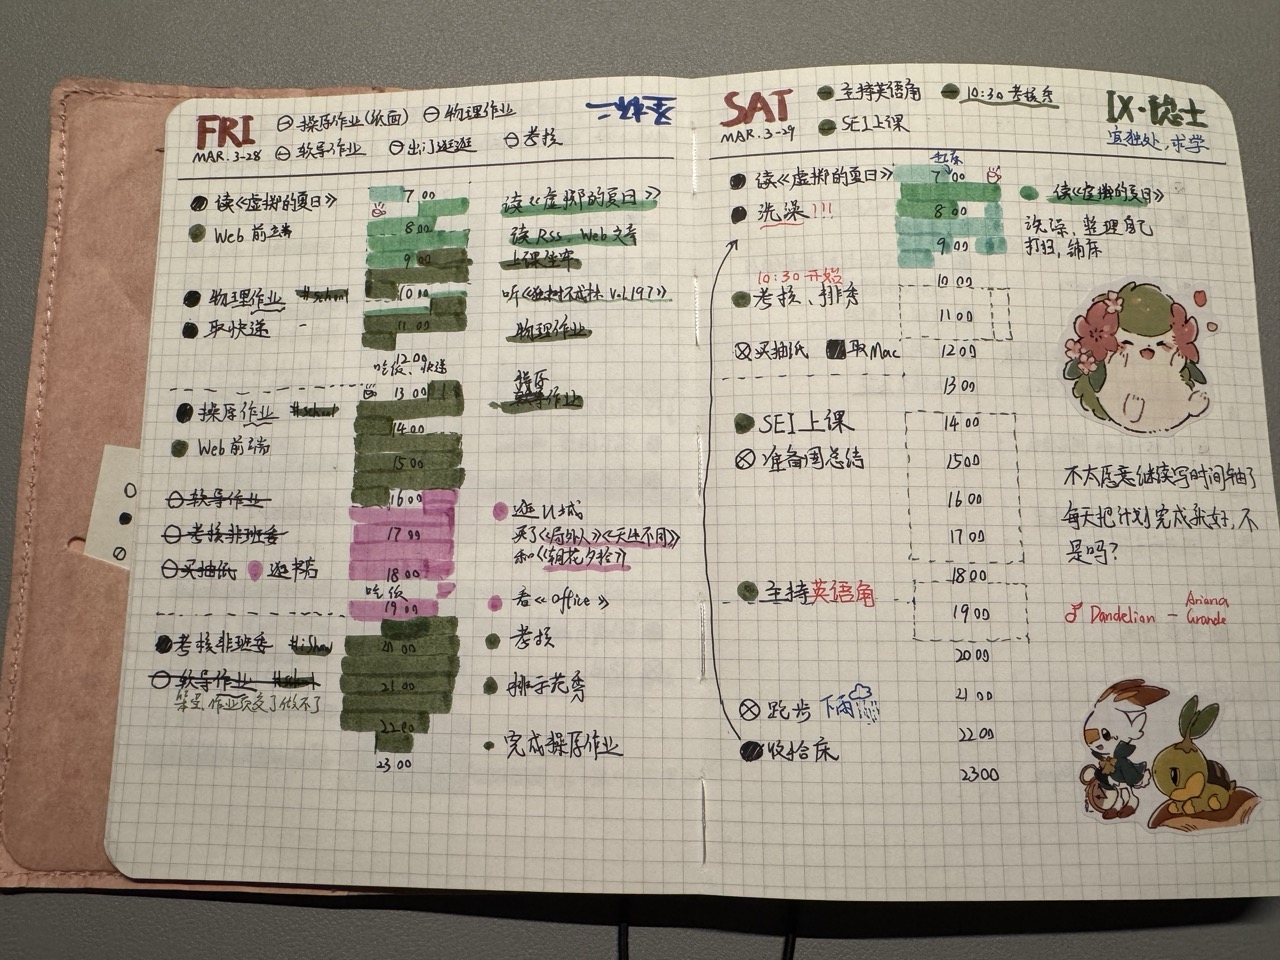 FRI
MAR. 3-28
操原作业(纸面)
物理作业
软导作业
出门逛逛
考核
读《虚掷的夏日》
Web 前端
物理作业 #school
取快递
操原作业 #school
Web 前端
软导作业
考核非班委
买抽纸
逛书店
考核非班委
软导作业
作业员交了做不了
7 00
8 00
9 00
10 00
11 00
12 00
吃饭、快递
13 00
14 00
15 00
16 00
17 00
18 00
吃饭
19 00
20 00
21 00
22 00
23 00
读《虚掷的夏日》
读 RSS、Web 文章
上课坐牢
听《独树不成林 Vol.197》
物理作业
操原
作业
逛 U城
买了《局外人》《天生不同》
和《朝花夕拾》
看《office》
考核
排示范季
完成操原作业
SAT
MAR. 3-29
主持英语角
10:30 考核季
SEI 上课
IX·隐士
宜独处,求学
读《虚掷的夏日》
洗澡!!!
10:30 开始
考核、排季
买抽纸
取Mac
SEI 上课
准备周总结
主持英语角
跑步 下雨
收拾床
起床
7 00
8 00
9 00
10 00
11 00
12 00
13 00
14 00
15 00
16 00
17 00
18 00
19 00
20 00
21 00
22 00
23 00
读《虚掷的夏日》
洗漱、整理自己
打扫、铺床
不太愿意继续写时间轴了
每天把计划完成就好,不
是吗?
Dandelion - Ariana Grande